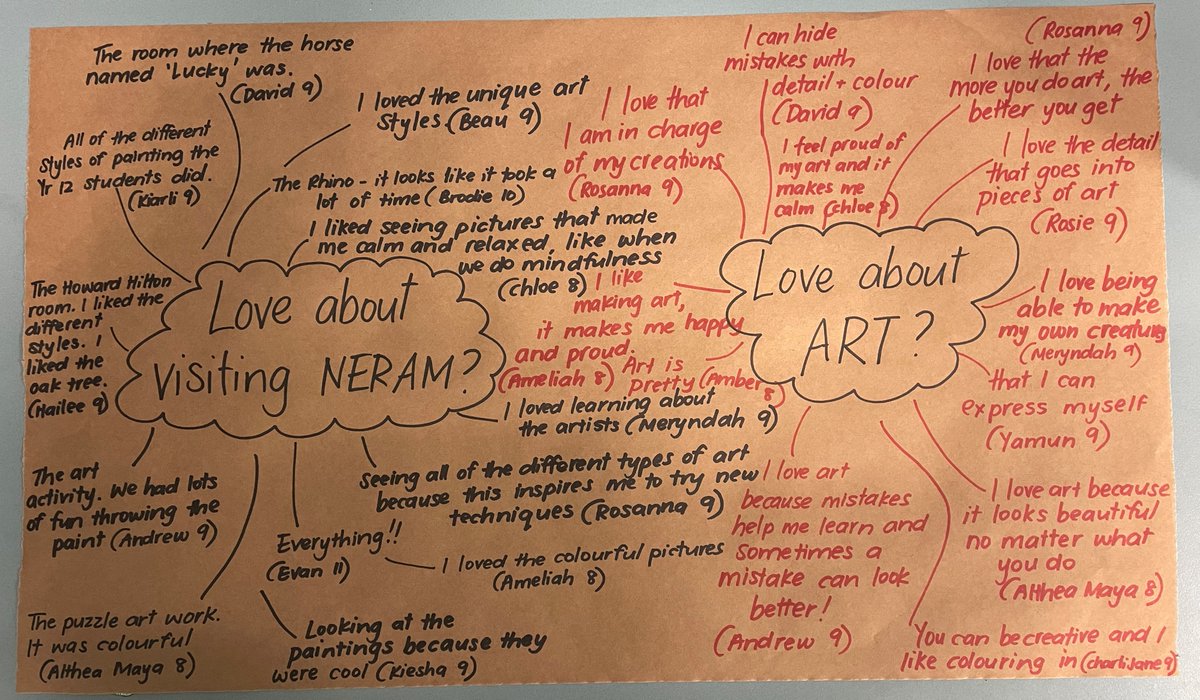 The room where the horse
named 'Lucky' was.
(David 9)
I loved the unique art
styles. (Beau 9)
All of the different
styles of painting the
Yr 12 students did.
(Kiarli 9)
The Rhino - it looks like it took a
lot of time (Brodie 10)
I liked seeing pictures that made
me calm and relaxed, like when
we do mindfulness
(Chloe 8)
The Howard Hilton
room. I liked the
different
styles. I
liked the
oak tree.
(Hailee 9)
Love about
visiting NERAM?
I loved learning about
the artists (Meryndah 9)
The art
activity. We had lots
of fun throwing the
paint (Andrew 9)
Seeing all of the different types of art
because this inspires me to try new
techniques (Rosanna 9)
Everything!!
(Evan 11)
I loved the colourful pictures
(Ameliah 8)
The puzzle art work.
It was colourful
(Althea Maya 8)
Looking at the
paintings because they
were cool (Kiesha 9)
I love that
I am in charge
of my creations
(Rosanna 9)
I can hide
mistakes with
detail + colour
(David 9)
I feel proud of
my art and it
makes me
calm (Chloe 8)
(Rosanna 9)
I love that the
more you do art, the
better you get
I love the detail
that goes into
pieces of art
(Rosie 9)
Love about
ART?
I like
making art,
it makes me happy
and proud.
(Ameliah 8)
Art is
pretty (Amber 8)
I love being
able to make
my own creature
(Meryndah 9)
that I can
express myself
(Yamun 9)
I love art
because mistakes
help me learn and
sometimes a
mistake can look
better!
(Andrew 9)
I love art because
it looks beautiful
no matter what
you do
(Althea Maya 8)
You can be creative and I
like colouring in (CharliJane 9)